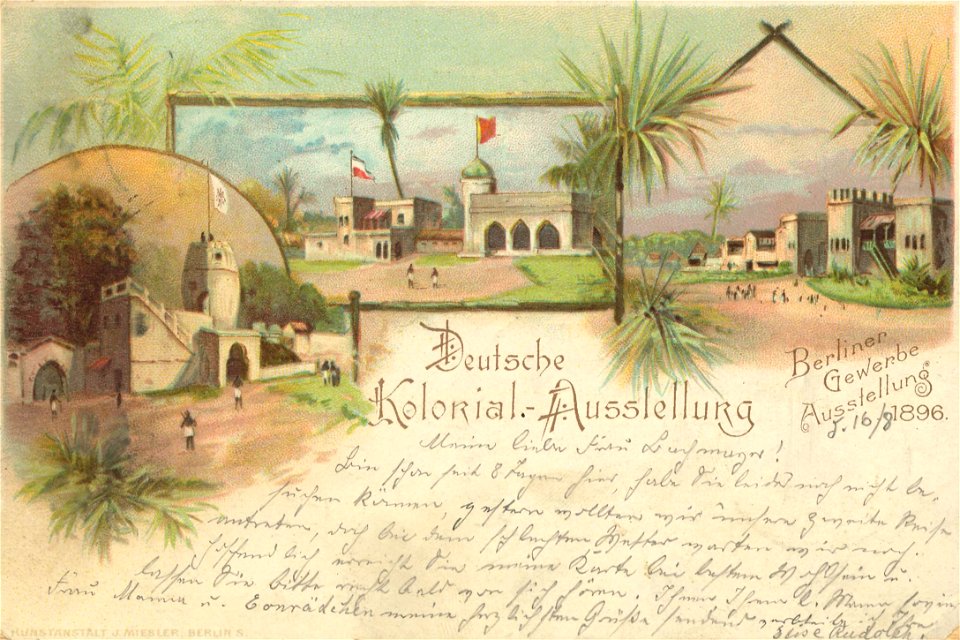 Deutsche
Kolonial-Ausstellung
Berliner
Gewerbe
Ausstellung
1896.
d. 16/8
Meine liebe Frau Bachmayer!
Bin schon seit 8 Tagen hier, habe Sie leider noch nicht be-
suchen können, gestern wollten wir unsere zweite Reise
antreten, doch bei dem schlechten Wetter warten wir noch.
Hoffendlich erreicht Sie meine Karte bei bestem Wohlsein u.
lassen Sie bitte recht bald von sich hören. Ihnen Ihrer l. Mama sowie
Frau Mama u. Conrädchen meine herzlichsten Grüße sendend verbleibe ich Ihre
Elise Rudolph
KUNSTANSTALT J. MIESLER, BERLIN S.